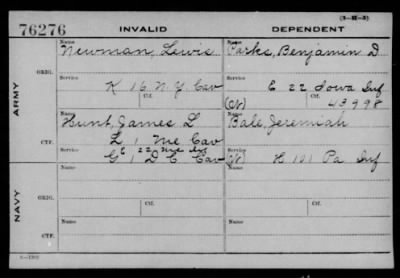 (3-M-3)
76276
INVALID
DEPENDENT
ARMY
ORIG.
Name
Newman, Lewis
Service
K 16 N.Y. Cav
Ctf.
Name
Parks, Benjamin D
Service
E 22 Iowa Inf
(W)
Ctf.
43998
CTF.
Name
Hunt, James L
L 1 Me Cav
E 22 Me Inf
G 1 D C Cav
Bale, Jeremiah
(W) H 101 Pa Inf
NAVY
ORIG.
Name
Service
Ctf.
Name
Service
Ctf.
CTF.
Name
Name